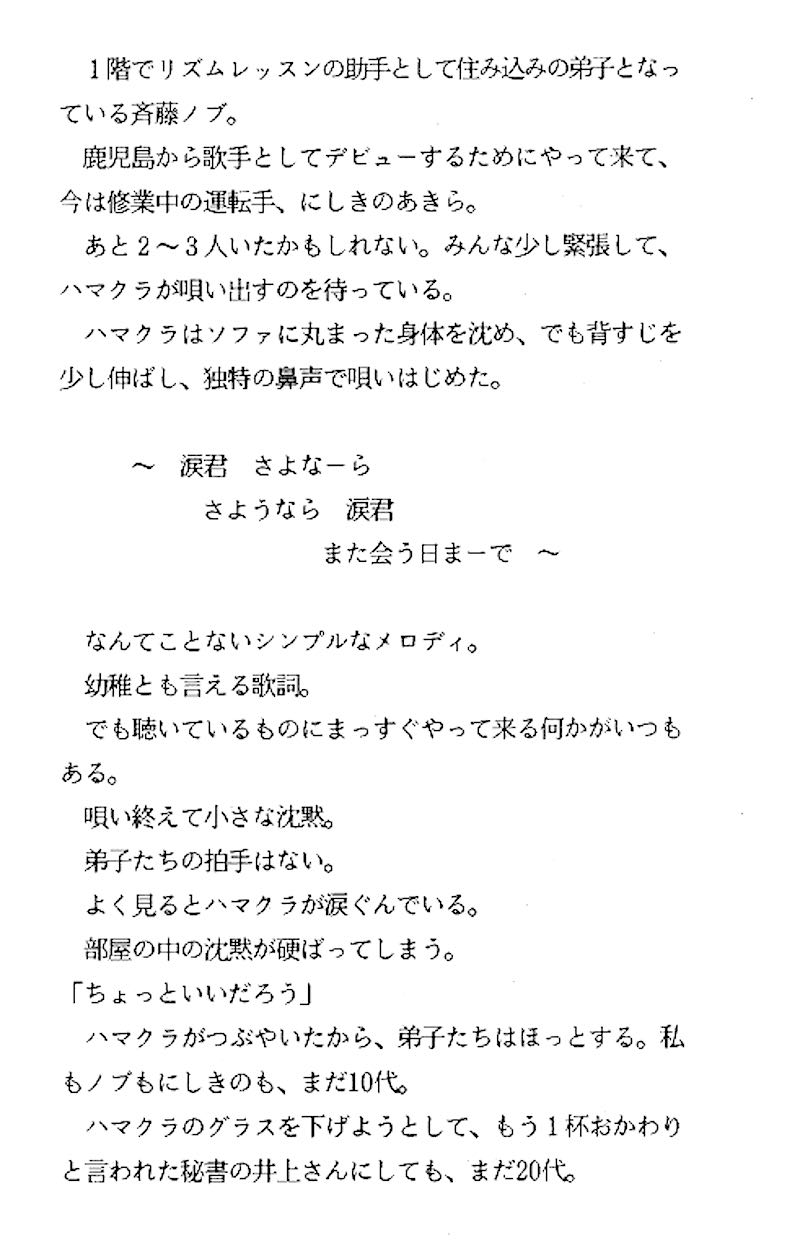 1階でリズムレッスンの助手として住み込みの弟子となっ
ている斉藤ノブ。
　鹿児島から歌手としてデビューするためにやって来て、
今は修業中の運転手、にしきのあきら。
　あと2〜3人いたかもしれない。みんな少し緊張して、
ハマクラが唄い出すのを待っている。
　ハマクラはソファに丸まった身体を沈め、でも背すじを
少し伸ばし、独特の鼻声で唄いはじめた。
〜　涙君　さよなーら
さようなら　涙君
また会う日まーで　〜
　なんてことないシンプルなメロディ。
　幼稚とも言える歌詞。
　でも聴いているものにまっすぐやって来る何かがいつも
ある。
　唄い終えて小さな沈黙。
　弟子たちの拍手はない。
　よく見るとハマクラが涙ぐんでいる。
　部屋の中の沈黙が硬ばってしまう。
「ちょっといいだろう」
　ハマクラがつぶやいたから、弟子たちはほっとする。私
もノブもにしきのも、まだ10代。
　ハマクラのグラスを下げようとして、もう1杯おかわり
と言われた秘書の井上さんにしても、まだ20代。